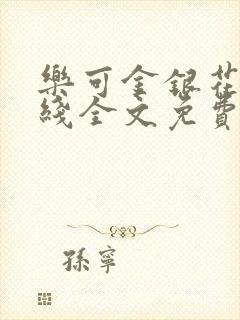 樂可金銀花
綫全文免費
孫寧